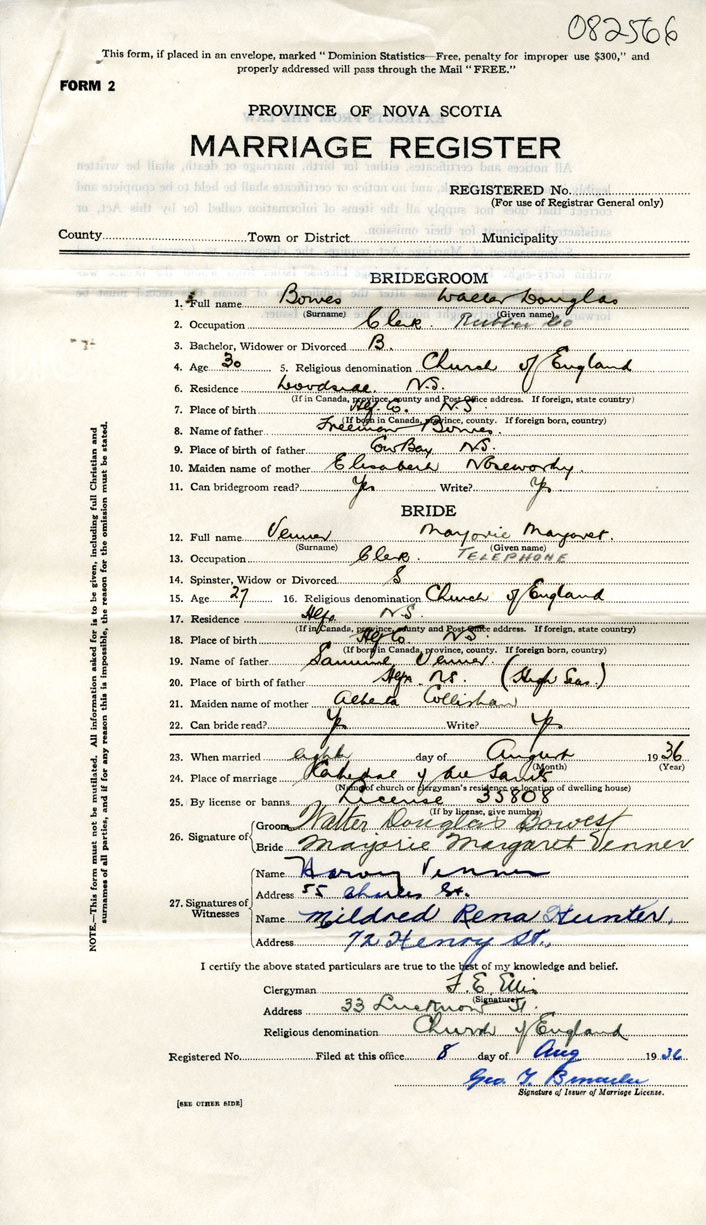 082566
This form, if placed in an envelope, marked "Dominion Statistics—Free, penalty for improper use $300," and
properly addressed will pass through the Mail "FREE."
FORM 2
PROVINCE OF NOVA SCOTIA
MARRIAGE REGISTER
REGISTERED No.
(For use of Registrar General only)
County Town or District Municipality
BRIDEGROOM
1. Full name Bowes Walter Douglas
(Surname) (Given name)
2. Occupation Clerk Rubber Co
3. Bachelor, Widower or Divorced B.
4. Age 30 5. Religious denomination Church of England
6. Residence Woodside N.S.
(If in Canada, province, county and Post Office address. If foreign, state country)
7. Place of birth Hfx. Co. N.S.
(If born in Canada, province, county. If foreign born, country)
8. Name of father Freeman Bowes
9. Place of birth of father Cow Bay N.S.
10. Maiden name of mother Elisabeth Noseworthy
11. Can bridegroom read? Yes Write? Yes
BRIDE
12. Full name Venner Marjorie Margaret.
(Surname) (Given name)
13. Occupation Clerk TELEPHONE
14. Spinster, Widow or Divorced S
15. Age 27 16. Religious denomination Church of England
17. Residence Hfx. N.S.
(If in Canada, province, county and Post Office address. If foreign, state country)
18. Place of birth Hfx Co. N.S.
(If born in Canada, province, county. If foreign born, country)
19. Name of father Samuel Venner.
20. Place of birth of father Hfx. N.S. (High Seas.)
21. Maiden name of mother Alberta
22. Can bride read? Yes Write? Yes
23. When married eighth day of August 1936
(Month) (Year)
24. Place of marriage
(Name of church or clergyman's residence or location of dwelling house)
25. By license or banns License 33808
(If by license, give number)
26. Signature of Groom Walter Douglas Bowes
Bride Marjorie Margaret Venner
27. Signatures of Witnesses Name Harvey Venner
Address 55 Charles St.
Name Mildred Rena Hunter,
Address 72 Henry St.,
I certify the above stated particulars are true to the best of my knowledge and belief.
Clergyman F. E. Ellis
(Signature)
Address 33 Lucknow St.
Religious denomination Church of England
Registered No. Filed at this office 8 day of Aug 1936
Geo. T.
Signature of Issuer of Marriage License.
[SEE OTHER SIDE]
NOTE.—This form must not be mutilated. All information asked for is to be given, including full Christian and
surnames of all parties, and if for any reason this is impossible, the reason for the omission must be stated.